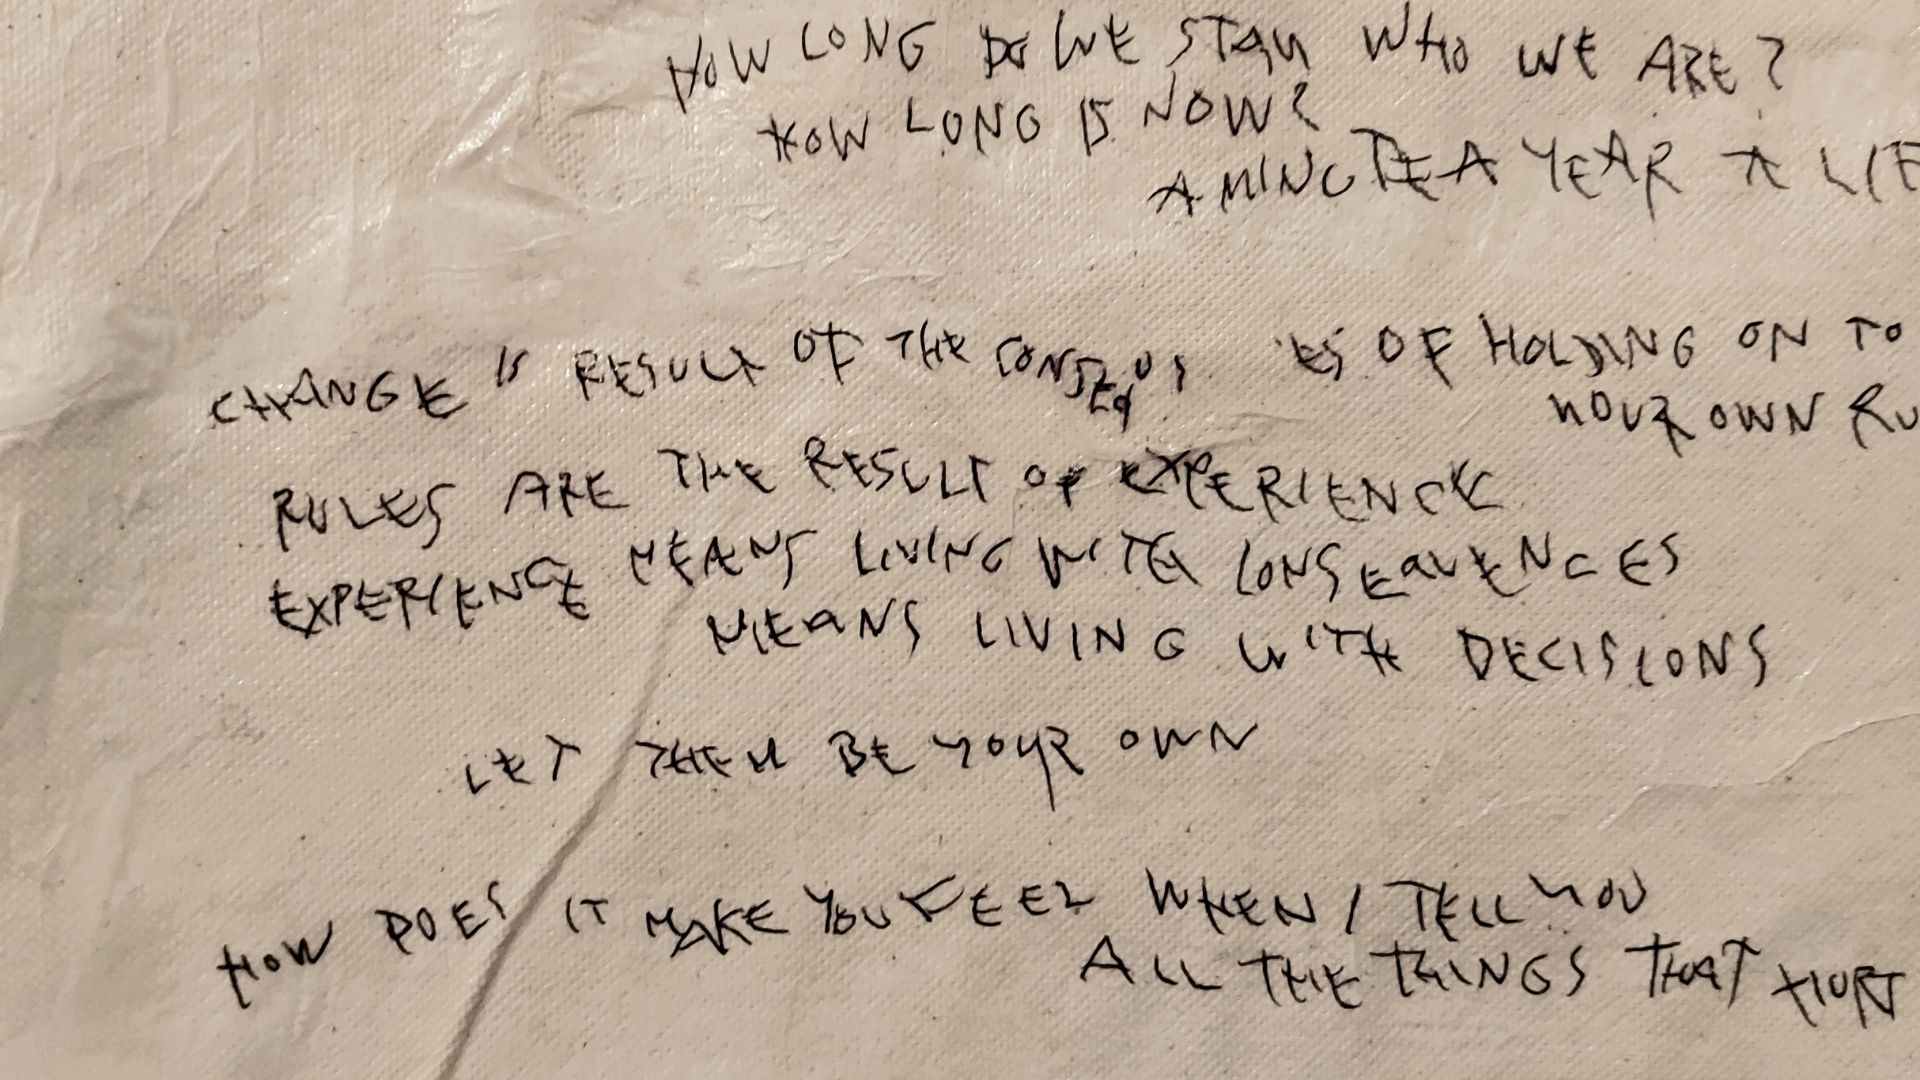 HOW LONG DO WE STAY WHO WE ARE?
HOW LONG IS NOW?
A MINUTE A YEAR A
CHANGE IS RESULT OF THE OF HOLDING ON TO
YOUR OWN
RULES ARE THE RESULT OF EXPERIENCE
EXPERIENCE MEANS LIVING WITH CONSEQUENCES
MEANS LIVING WITH DECISIONS
LET THEM BE YOUR OWN
HOW DOES IT MAKE YOU FEEL WHEN I TELL YOU
ALL THE THINGS THAT HURT